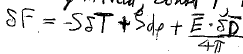 δF = -SδT + ζdρ + E⃗·δD⃗/4π